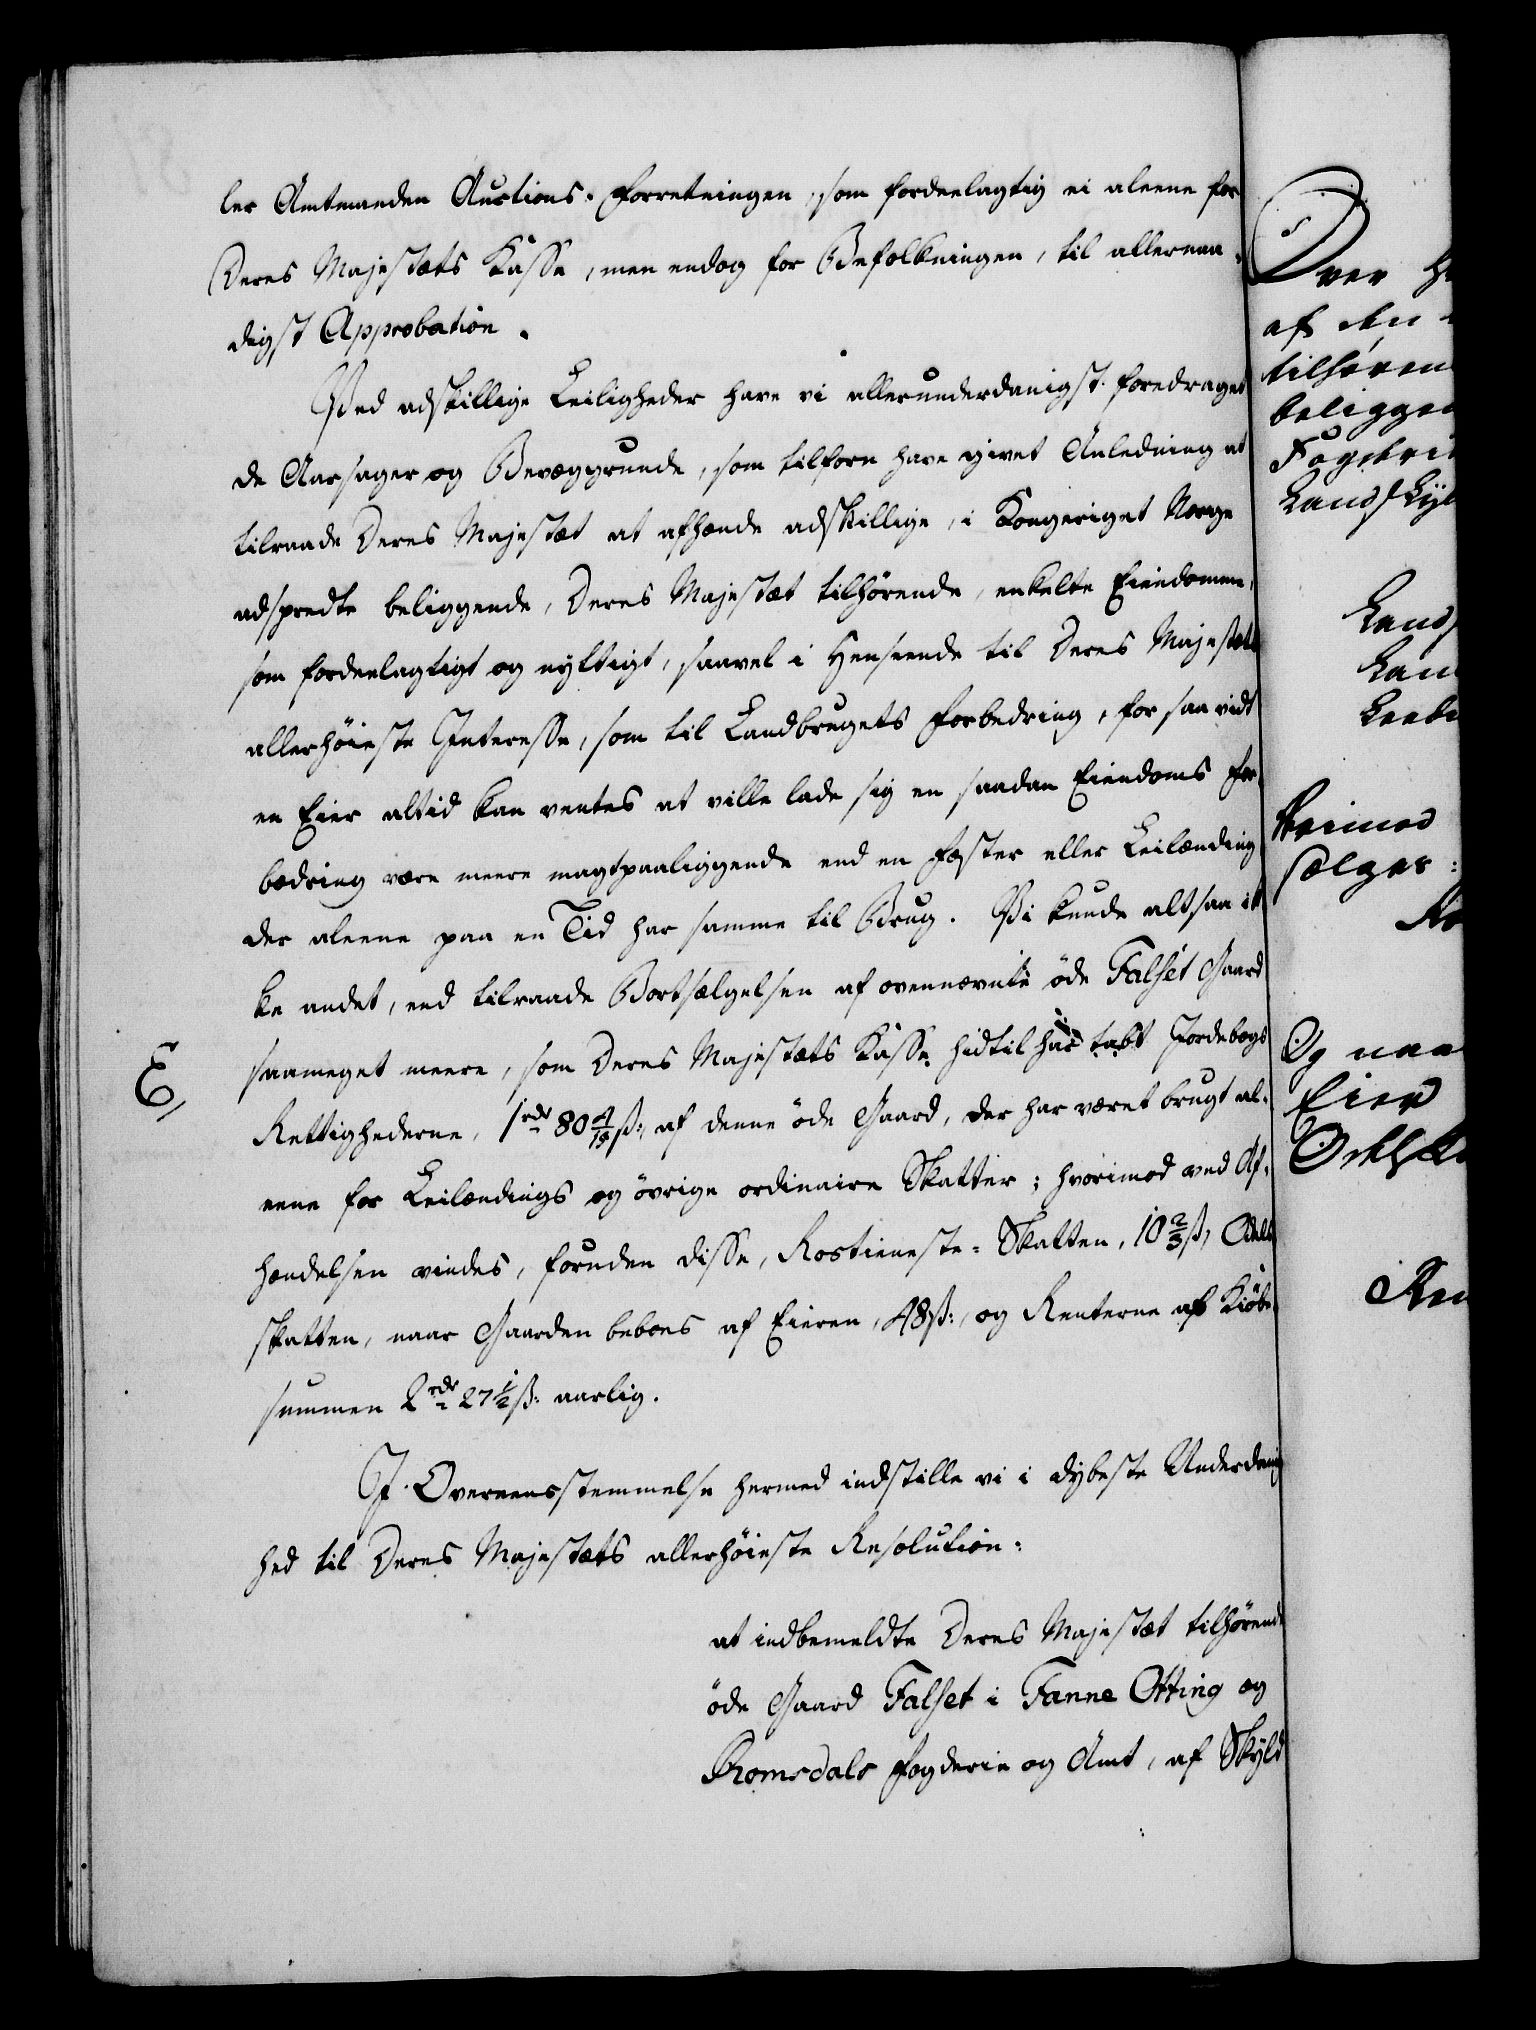 ler Amtmanden Auctions-Forretningen, som fordeelagtig ei aleene for
Deres Majestæts Kasse, men endog for Befolkningen, til allernaa-
digst Approbation.
Ved adskillige Leiligheder have vi allerunderdanigst foredraget
de Aarsager og Bevæggrunde, som tilforn have givet Anledning at
tilraade Deres Majestæt at afhænde adskillige, i Kongeriget Norge
adspredte beliggende, Deres Majestæt tilhørende, enkelte Eiendomme,
som fordeelagtigt og nyttigt, saavel i Henseende til Deres Majestæts
allerhøieste Interesse, som til Landbrugets Forbedring, for saavidt
en Eier altid kan ventes at ville lade sig en saadan Eiendoms For-
bedring være meere magtpaaliggende end en Fæster eller Leilænding
der aleene paa en Tid har samme til Brug. Vi kunde altsaa ik
ke andet, end tilraade Bortsælgelsen af ovennævnte öde Falset Gaard
saameget meere, som Deres Majestæts Kasse hidtil har tabt Jordebogs
E,
Rettighederne, 1 rdr 80 4/19 ß:, af denne öde Gaard, der har været brugt al-
eene for Leilændings og övrige ordinaire Skatter; hvorimod ved Af-
hændelsen vindes, foruden disse, Rostieneste-Skatten, 10 2/3 ß, Odels
skatten, naar Gaarden beboes af Eieren, 48 ß:, og Renterne af Kiöbe
summen 2 rdr 27 1/2 ß: aarlig.
I Overeensstemmelse hermed indstille vi i dybeste Underdanig
hed til Deres Majestæts allerhöieste Resolution:
at indbemeldte Deres Majestæt tilhörende
öde Gaard Falset i Fanne Otting og
Romsdals Fogderie og Amt, af Skyld
af den
tilhøren
beliggen
Fogderi
Landskyl
Lands
Lan
hvimod
sælges:
Og naa
Eier